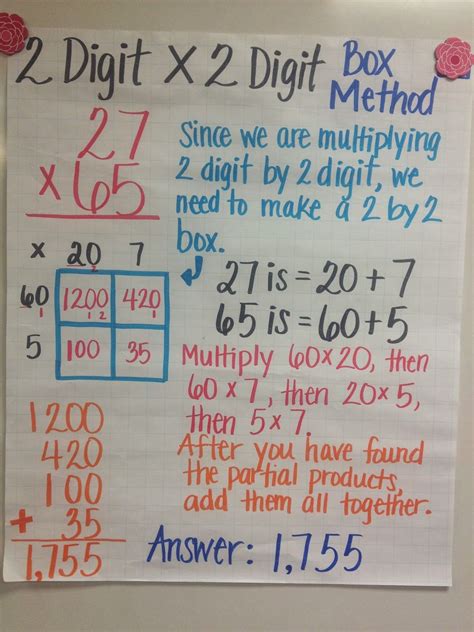 2 Digit X 2 Digit Box
Method
27
x65
Since we are multiplying
2 digit by 2 digit, we
need to make a 2 by 2
box.
x 20 7
2
60 1200 420
1 1 2 1
5 100 35
27 is = 20 + 7
65 is = 60+5
Multiply 60x20, then
60 x 7, then 20x5,
then 5x7.
After you have found
the partial products,
add them all together.
1200
420
100
+ 35
1,755
Answer: 1,755